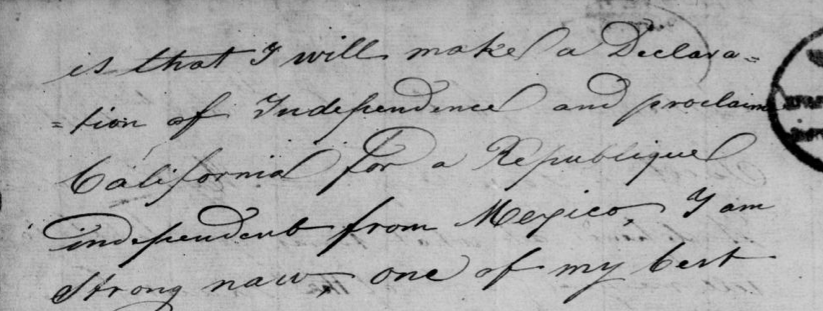 is that I will make a Declara=
=tion of Independence and proclaim
California for a Republique
independent from Mexico, I am
strong naw, one of my best